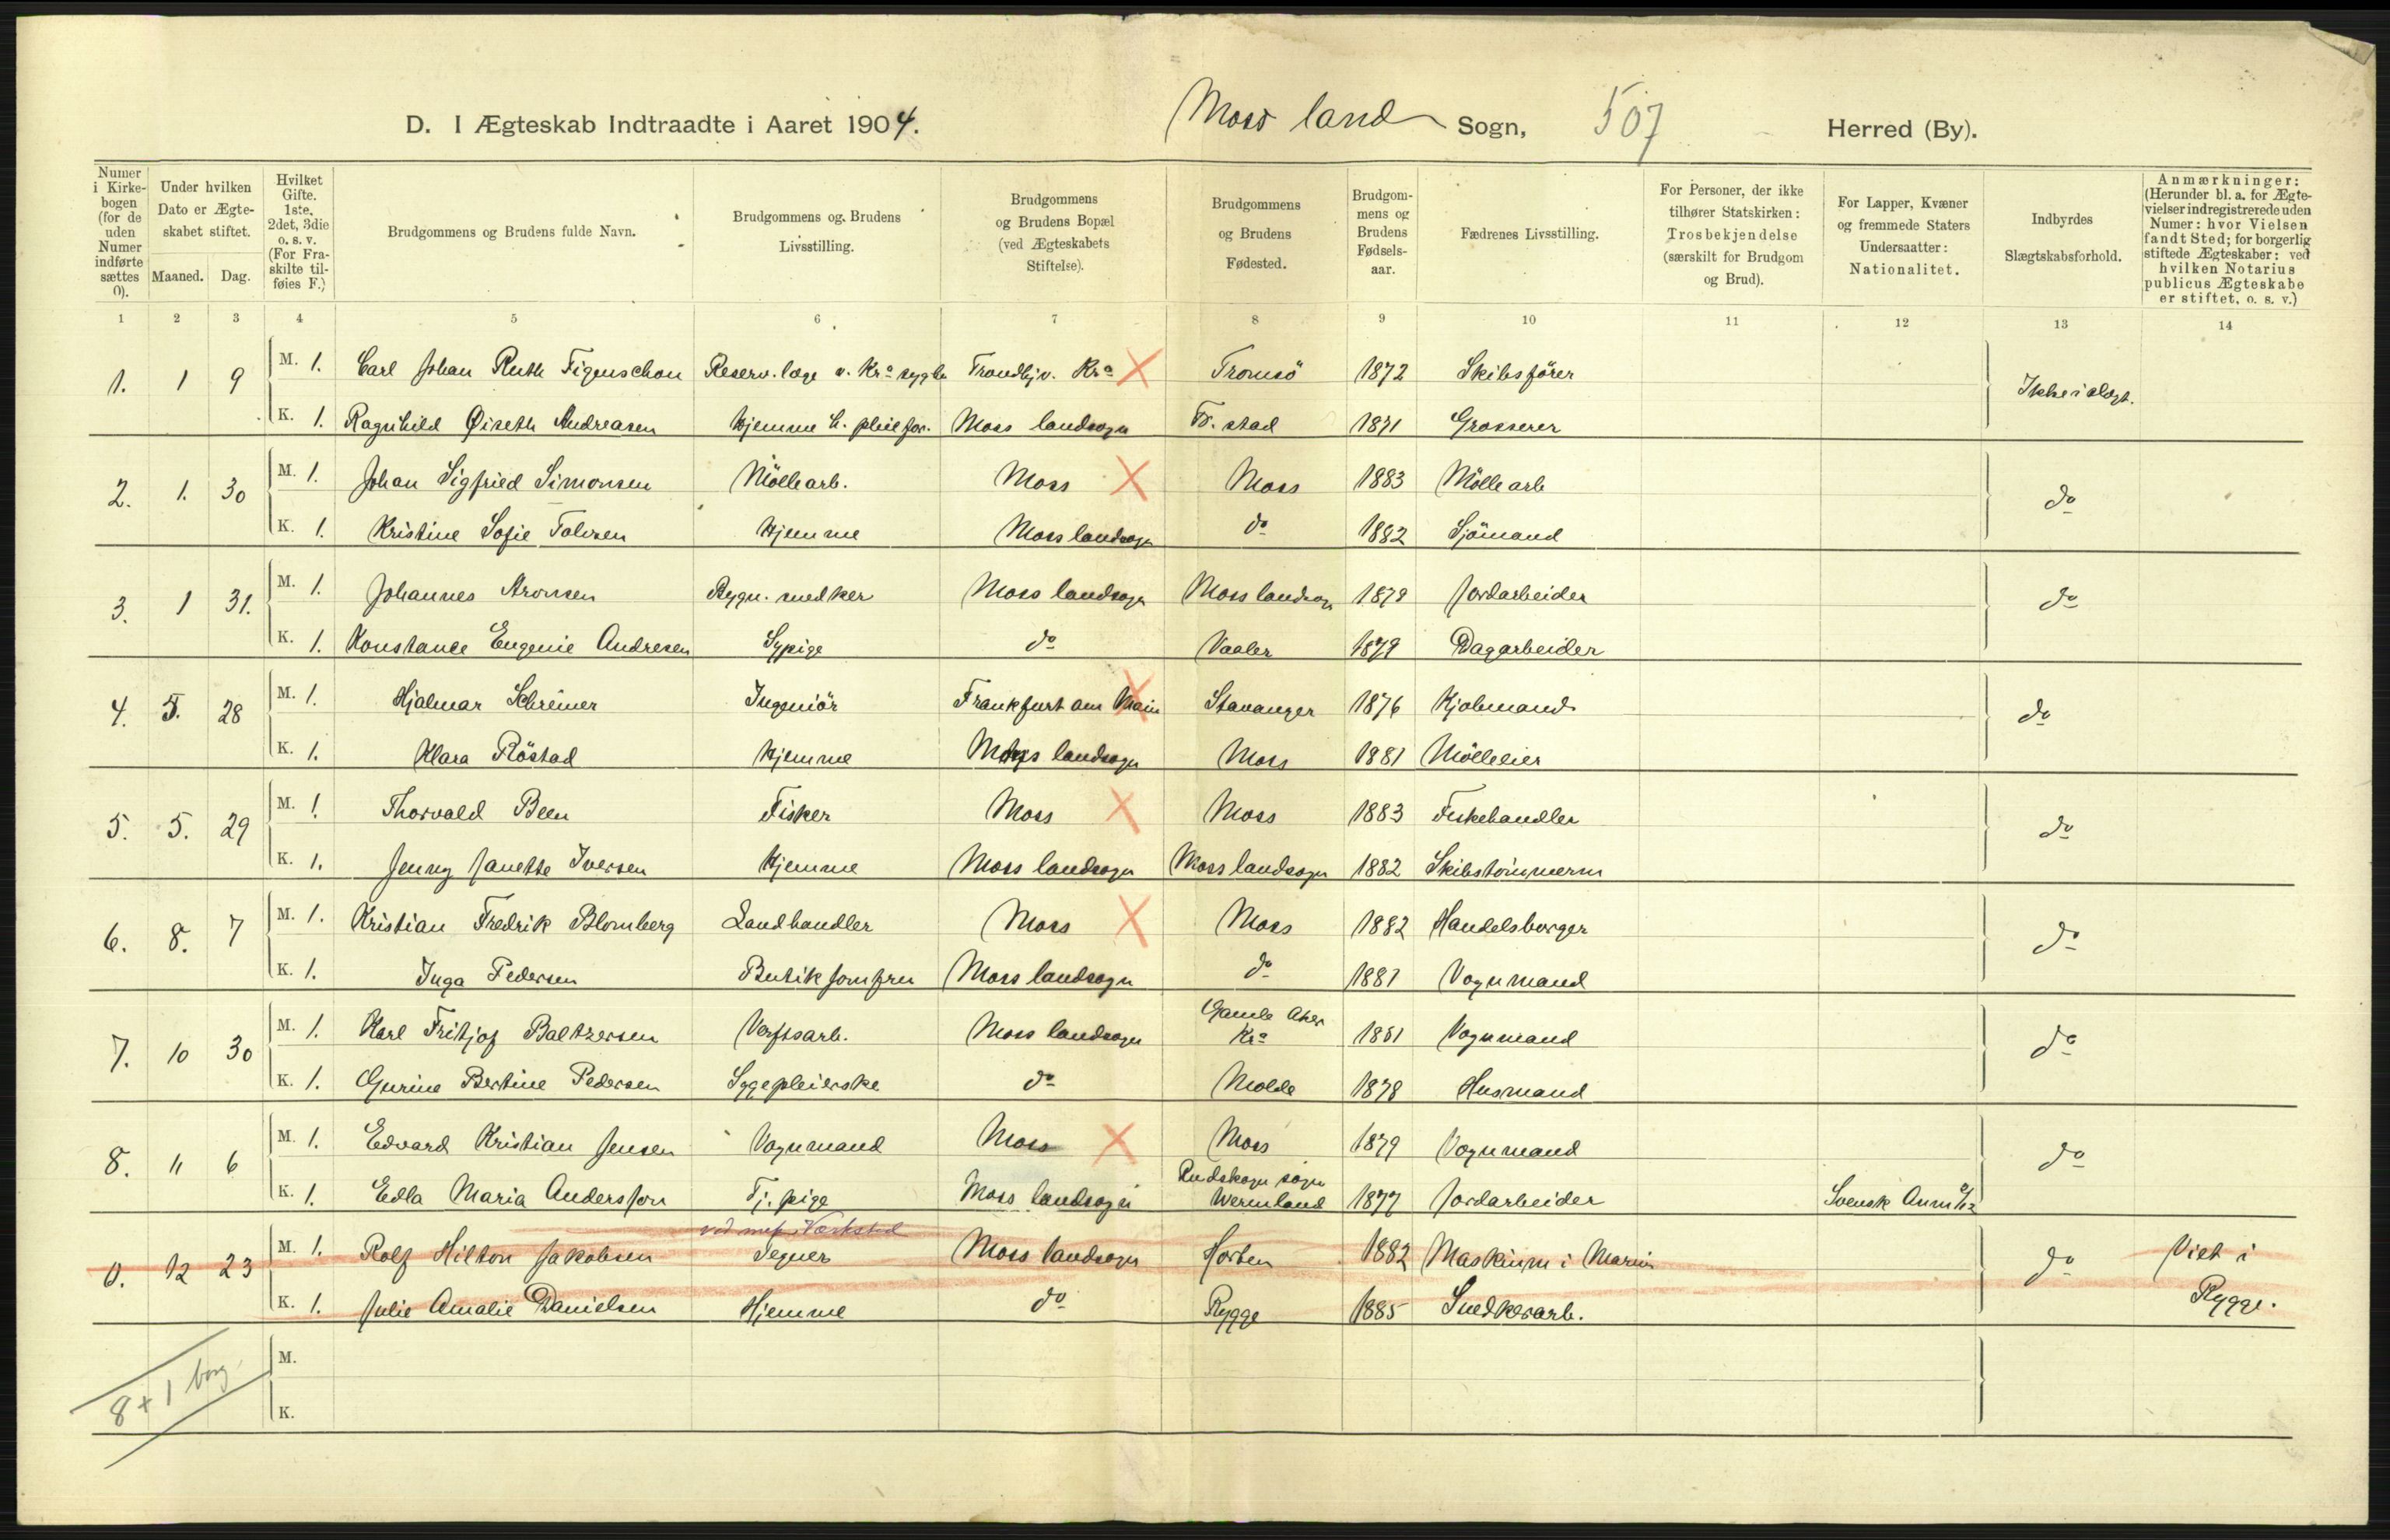 D. I Ægteskab Indtraadte i Aaret 1904. Moss land Sogn, 507 Herred (By).
Numer i Kirkebogen (for de uden Numer indførte sættes 0).
Under hvilken Dato er Ægteskabet stiftet.
Maaned. Dag.
Hvilket Gifte. 1ste, 2det, 3die o. s. v. (For Fraskilte tilføies F.)
Brudgommens og Brudens fulde Navn.
Brudgommens og Brudens Livsstilling.
Brudgommens og Brudens Bopæl (ved Ægteskabets Stiftelse).
Brudgommens og Brudens Fødested.
Brudgommens og Brudens Fødselsaar.
Fædrenes Livsstilling.
For Personer, der ikke tilhører Statskirken: Trosbekjendelse (særskilt for Brudgom og Brud).
For Lapper, Kvæner og fremmede Staters Undersaatter: Nationalitet.
Indbyrdes Slægtskabsforhold.
Anmærkninger: (Herunder bl. a. for Ægtevielser indregistrerede uden Numer: hvor Vielsen fandt Sted; for borgerlig stiftede Ægteskaber: ved hvilken Notarius publicus Ægteskabe er stiftet, o. s. v.)
1 2 3 4 5 6 7 8 9 10 11 12 13 14
1. 1 9 M. 1. Carl Johan Ruth Figenschou Reserv. læge v. Kra sygeh Trondhjv. Kra X Tromsö 1872 Skibsförer Ikke i slægt.
K. 1. Ragnhild Øiseth Andreasen Hjemme h. pleiefor. Moss landsogn Fr. stad 1871 Grosserer
2. 1. 30 M. 1. Johan Sigfried Simonsen Möllearb. Moss X Moss 1883 Möllearb do
K. 1. Kristine Sofie Tolvsen Hjemme Moss landsogn do 1882 Sjömand
3. 1 31. M. 1. Johannes Aronsen Bygn. snedker Moss landsogn Moss landsogn 1879 Jordarbeider do
K. 1. Konstance Eugenie Andresen Sypige do Vaaler 1879 Dagarbeider
4. 5. 28 M. 1. Hjalmar Schreiner Ingeniör Frankfurt am Main X Stavanger 1876 Kjøbmand do
K. 1. Klara Röstad Hjemme Moss landsogn Moss 1881 Mölleeier
5. 5. 29 M. 1. Thorvald Been Fisker Moss X Moss 1883 Fiskehandler do
K. 1. Jenny Janette Iversen Hjemme Moss landsogn Moss landsogn 1882 Skibstömmerm
6. 8. 7 M. 1. Kristian Fredrik Blomberg Landhandler Moss X Moss 1882 Handelsborger do
K. 1. Inga Pedersen Butikjomfru Moss landsogn do 1881 Vognmand
7. 10 30 M. 1. Karl Fritjof Baltzersen Verftsarb. Moss landsogn Gamle Aker Kra 1881 Vognmand do
K. 1. Gurine Bertine Pedersen Sygepleierske do Molde 1878 Husmand
8. 11 6 M. 1. Edvard Kristian Jensen Vognmand Moss X Moss 1879 Vognmand do
K. 1. Edla Maria Andersson Tj. pige Moss landsogn Rudskoga sogn Wermland 1877 Jordarbeider Svensk
0. 12 23 M. 1. Rolf Hilton Jakobsen ved mek. Værksted Tegner Moss landsogn Horten 1882 Maskinm i Marin do Viet i
K. 1. Julie Amalie Danielsen Hjemme do Rygge 1885 Snedkerarb. Rygge.
M.
8 + 1 borg.
K.